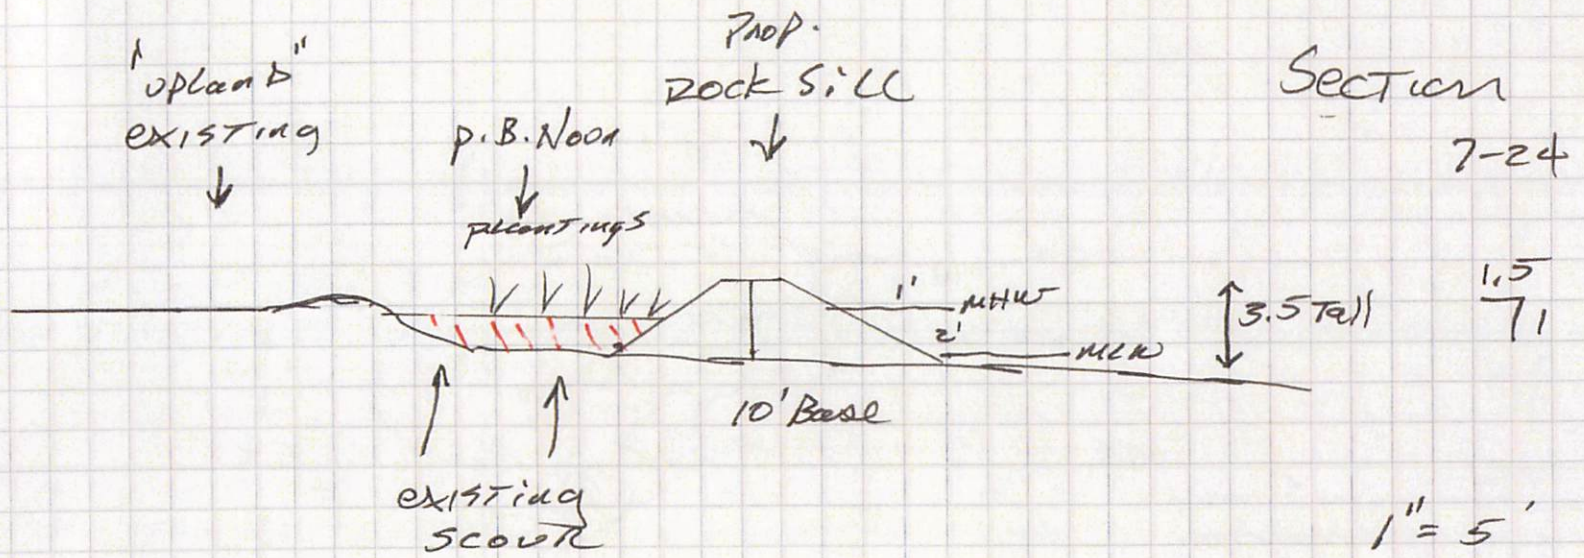 "upland"
existing
Prop.
Rock Sill
Section
7-24
P.B. Noon
plantings
1'
MHW
2'
MLW
3.5 Tall
1.5
1
10' Base
existing
scour
1" = 5'